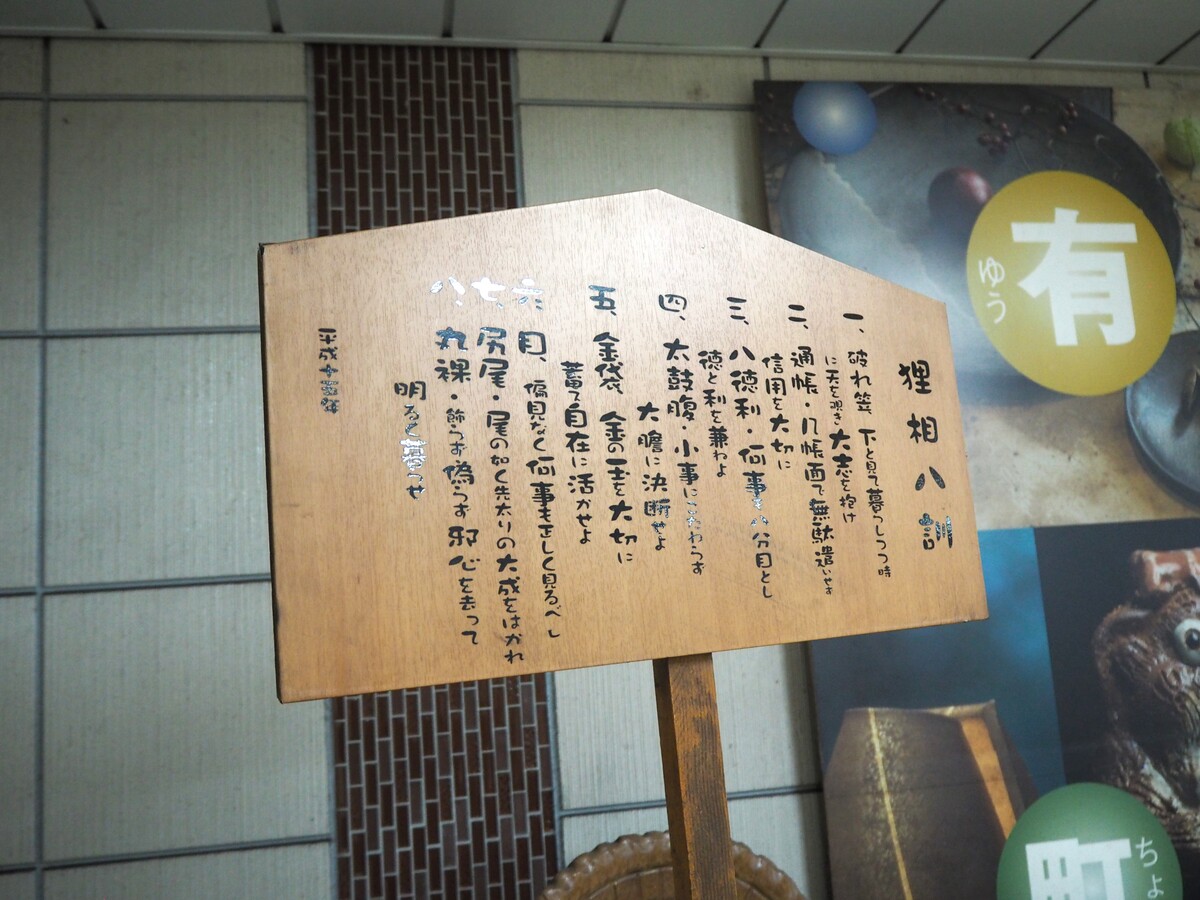 狸相八訓
一、破れ笠、下と見て暮らしつつ時
に天を覗き大志を抱け
二、通帳・几帳面で無駄遣いせず
信用を大切に
三、八徳利・何事も八分目とし
徳と利を兼わよ
四、太鼓腹・小事にこだわらず
大膽に決断せよ
五、金袋、金の玉を大切に
蓄て自在に活かせよ
六、目、偏見なく何事も正しく見るべし
七、尻尾・尾の如く先太りの大成をはかれ
八、丸裸・飾らず偽らず邪心を去って
明るく暮らせ
平成十
有
ゆう
町
ちょ